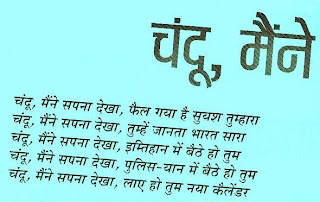 चंदू, मैंने
चंदू, मैंने सपना देखा, फैल गया है सुयश तुम्हारा
चंदू, मैंने सपना देखा, तुम्हें जानता भारत सारा
चंदू, मैंने सपना देखा, इम्तिहान में बैठे हो तुम
चंदू, मैंने सपना देखा, पुलिस-यान में बैठे हो तुम
चंदू, मैंने सपना देखा, लाए हो तुम नया कैलेंडर